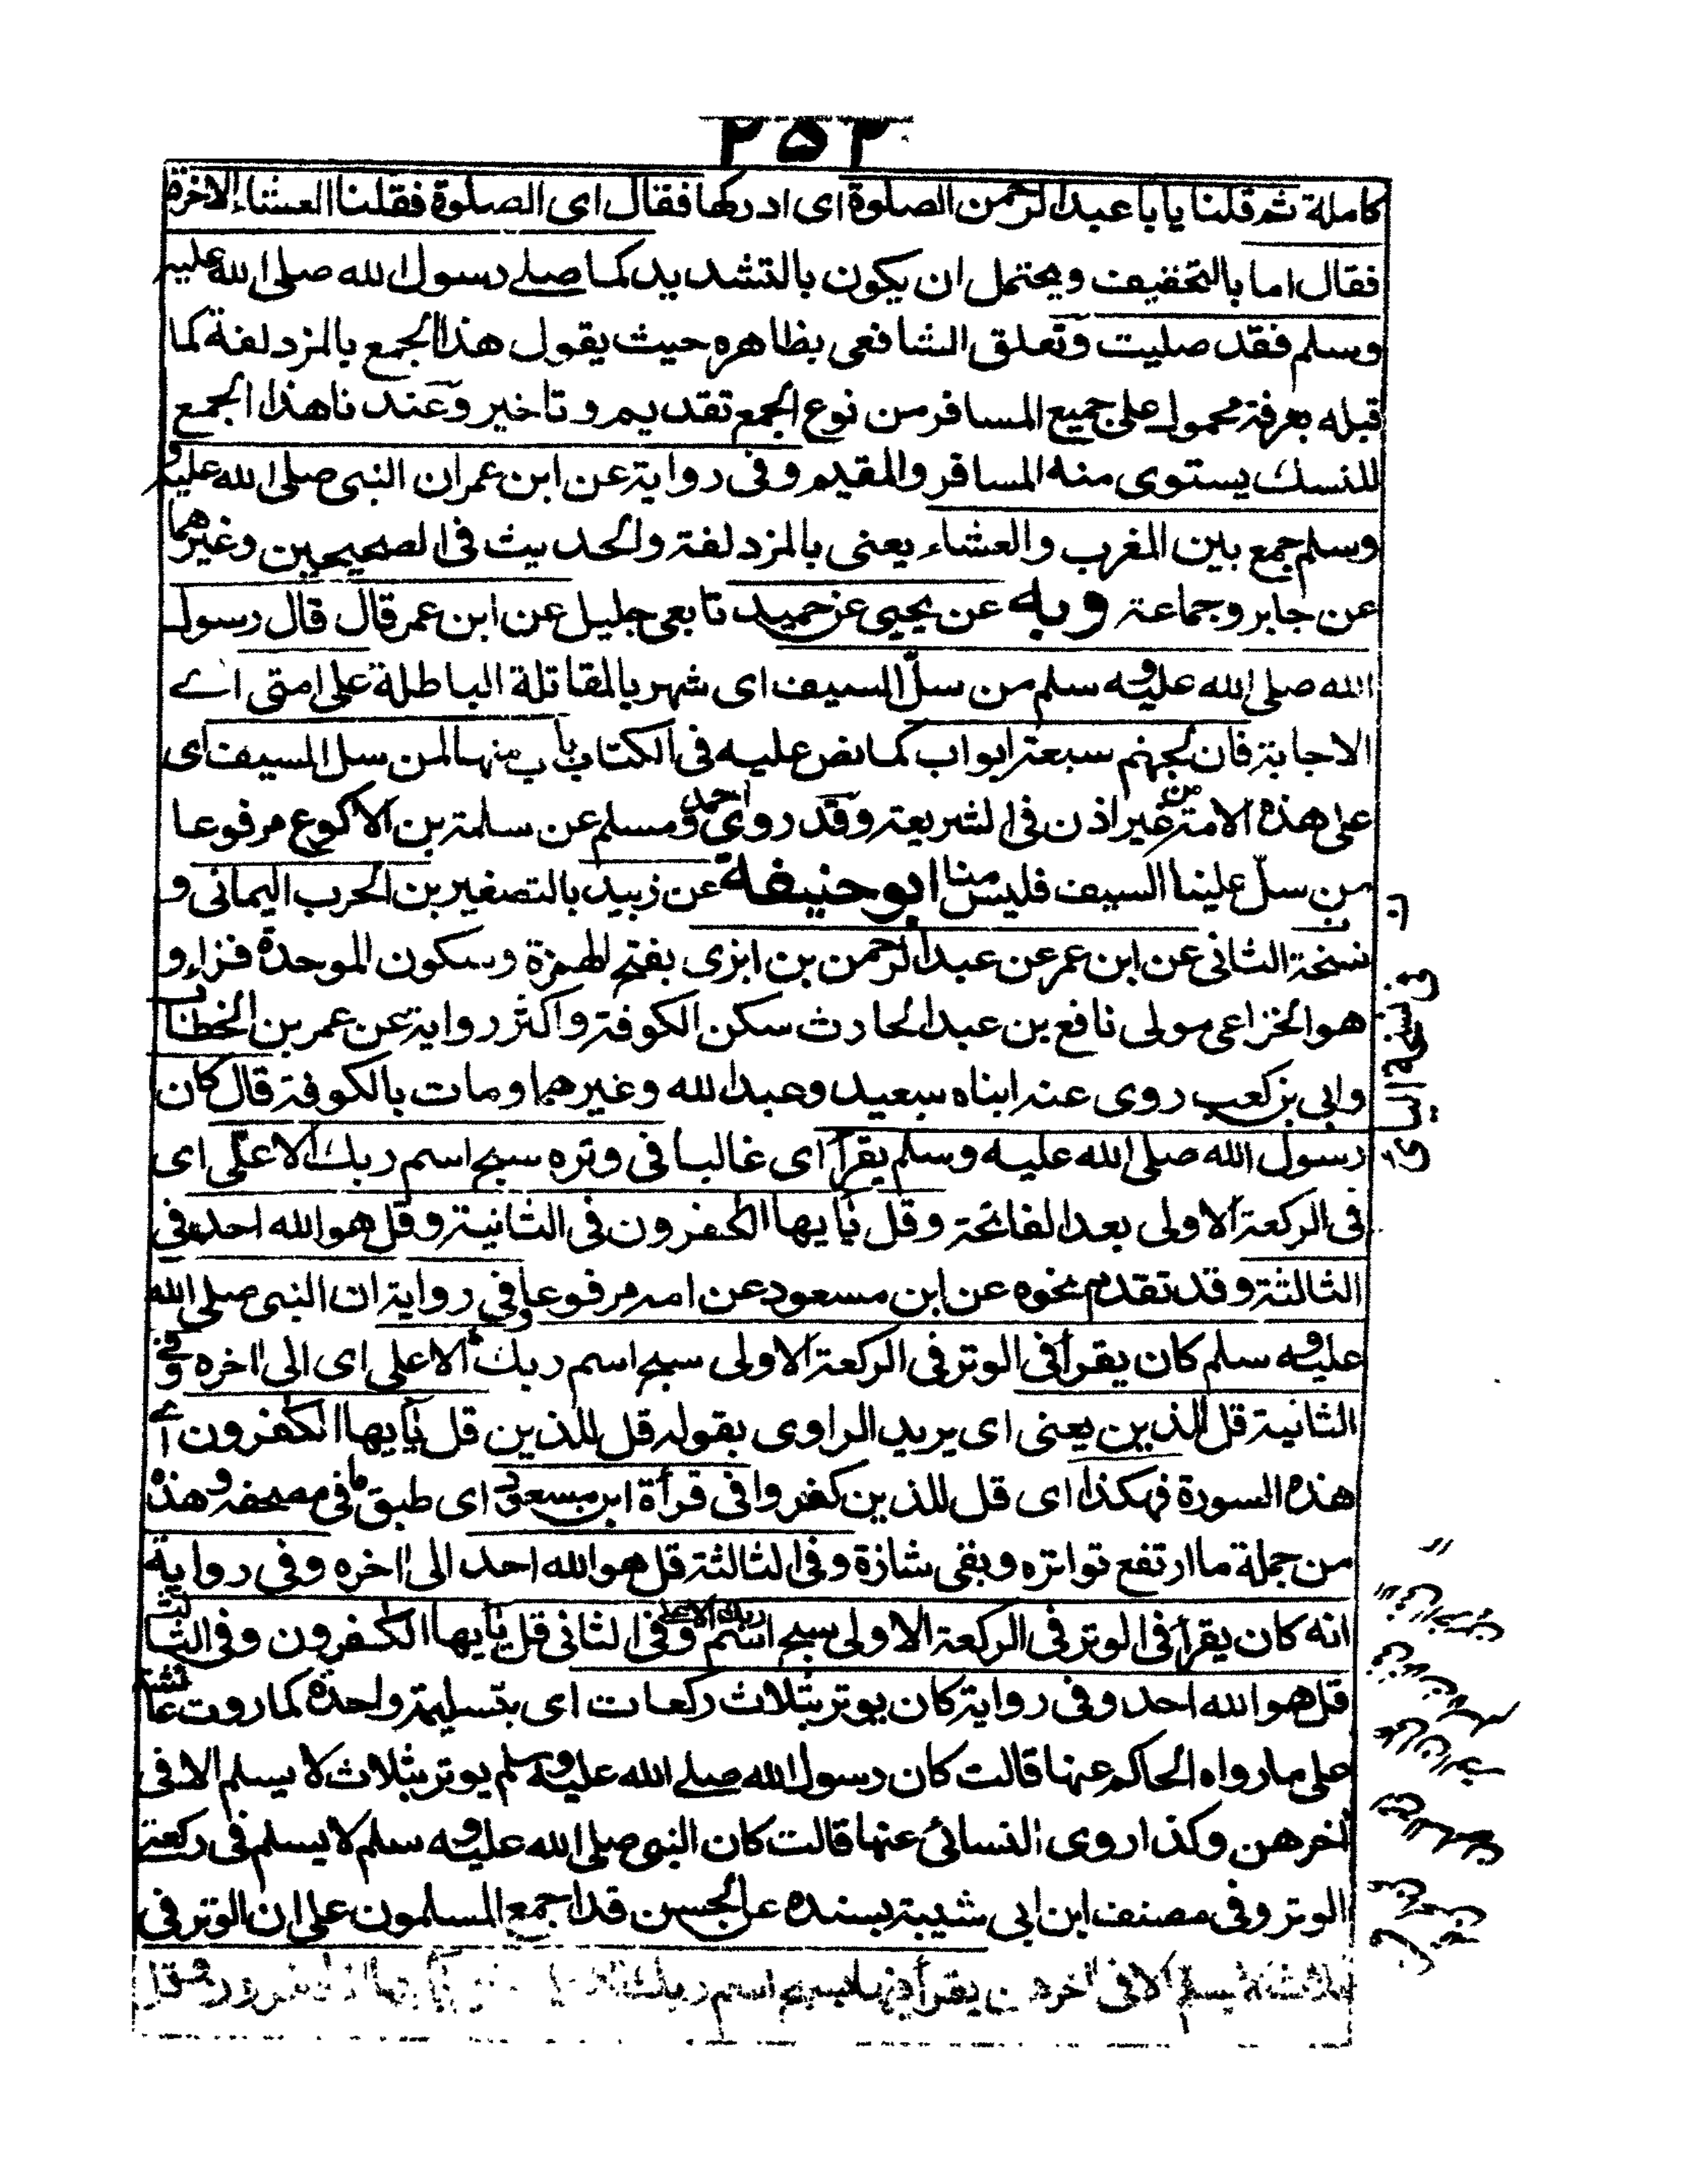 ٢٥٣
كاملة ثم قلنا يا با عبد الرحمن الصلوة اى ادركها فقال اى الصلوة فقلنا العشاء الاخرة
فقال اما بالتخفيف ويحتمل ان يكون بالتشديد كما صلے رسول الله صلى الله عليه
وسلم فقد صليت وتعلق الشافعى بظاهره حيث يقول هذا الجمع بالمزدلفة كما
قبله بعرفة محمول على جميع المسافر من نوع الجمع تقديم وتاخير وعندنا هذا الجمع
للنسك يستوى منه المسافر والمقيم وفى رواية عن ابن عمر ان النبى صلى الله عليه و
وسلم جمع بين المغرب والعشاء يعنى بالمزدلفة والحديث فى الصحيحين وغيرهما
عن جابر وجماعة وبه عن يحيى عن حميد تابعى جليل عن ابن عمر قال قال رسول
الله صلى الله عليه وسلم من سلّ السيف اى شهر بالمقاتلة الباطلة على امتى اے
الاجابة فان لجهنم سبعة ابواب كما نص عليه فى الكتاب باب منها لمن سل السيف اى
على هذه الامة من غير اذن فى الشريعة وقد روى احمد ومسلم عن سلمة بن الاكوع مرفوعا
من سلّ علينا السيف فليس منا ابو حنيفة عن زبيد بالتصغير بن الحرب اليمانى و
نسخة الثانى عن ابن عمر عن عبد الرحمن بن ابزى بفتح الهمزة وسكون الموحدة فزاء و
هو الخزاعى مولى نافع بن عبد الحارث سكن الكوفة واكثر رواية عن عمر بن الخطاب
وابى بن كعب روى عنه ابناه سعيد وعبد الله وغيرهما ومات بالكوفة قال كان
رسول الله صلى الله عليه وسلم يقرأ اى غالبا فى وتره سبح اسم ربك الاعلى اى
فى الركعة الاولى بعد الفاتحة وقل يٰايها الكٰفرون فى الثانية وقل هو الله احد فى
الثالثة وقد تقدم نحوه عن ابن مسعود عن امه مرفوعا وفى رواية ان النبى صلى الله
عليه وسلم كان يقرأ فى الوتر فى الركعة الاولى سبح اسم ربك الاعلى اى الى اخره وفى
الثانية قل للذين يعنى اى يريد الراوى بقوله قل للذين قل يٰايها الكٰفرون اے
هذه السورة فهكذا اى قل للذين كفروا فى قرأة ابن مسعود اى طبق ما فى مصحفه وهذه
من جملة ما ارتفع تواتره وبقى شازة وفى الثالثة قل هو الله احد الى اخره وفى رواية
انه كان يقرأ فى الوتر فى الركعة الاولى سبح اسم ربك الاعلى وفى الثانى قل يٰايها الكٰفرون وفى الثالثة
قل هو الله احد وفى رواية كان يوتر بثلاث ركعات اى بتسليمة واحدة كما روت عائشة
على ما رواه الحاكم عنها قالت كان رسول الله صلے الله عليه وسلم يوتر بثلاث لا يسلم الا فى
اخرهن وكذا روى النسائى عنها قالت كان النبى صلى الله عليه وسلم لا يسلم فى ركعتى
الوتر وفى مصنف ابن ابى شيبة بسنده عن الحسن قد اجمع المسلمون على ان الوتر فى
يسلم الا فى اخرهن يقرأ سبح اسم ربك
فى نسخة اليامى